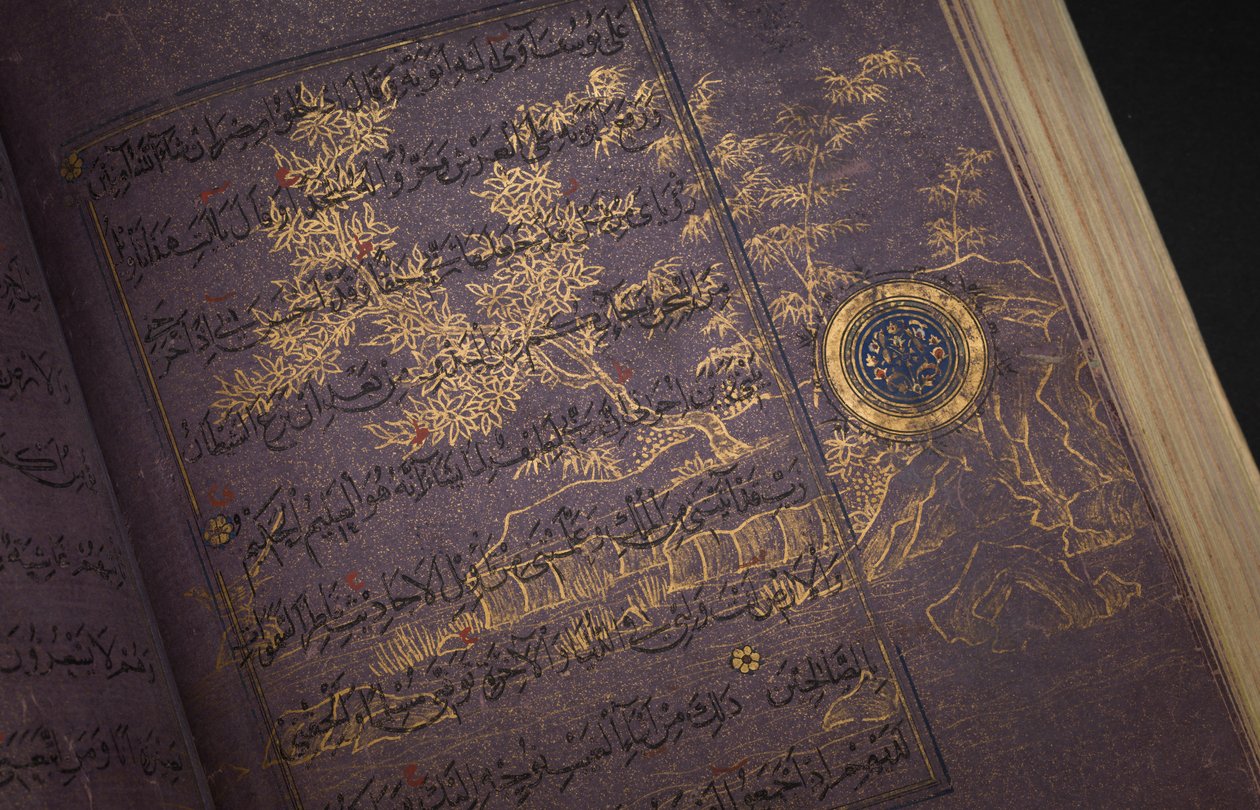 عَلَى يُوسُفَ آوَى إِلَيْهِ أَبَوَيْهِ وَقَالَ ادْخُلُوا مِصْرَ إِنْ شَاءَ اللَّهُ آمِنِينَ
وَرَفَعَ أَبَوَيْهِ عَلَى الْعَرْشِ وَخَرُّوا لَهُ سُجَّدًا وَقَالَ يَا أَبَتِ هَذَا تَأْوِيلُ
رُؤْيَايَ مِنْ قَبْلُ قَدْ جَعَلَهَا رَبِّي حَقًّا وَقَدْ أَحْسَنَ بِي إِذْ أَخْرَجَنِي
مِنَ السِّجْنِ وَجَاءَ بِكُمْ مِنَ الْبَدْوِ مِنْ بَعْدِ أَنْ نَزَغَ الشَّيْطَانُ
بَيْنِي وَبَيْنَ إِخْوَتِي إِنَّ رَبِّي لَطِيفٌ لِمَا يَشَاءُ إِنَّهُ هُوَ الْعَلِيمُ الْحَكِيمُ
رَبِّ قَدْ آتَيْتَنِي مِنَ الْمُلْكِ وَعَلَّمْتَنِي مِنْ تَأْوِيلِ الْأَحَادِيثِ فَاطِرَ السَّمَوَاتِ
وَالْأَرْضِ أَنْتَ وَلِيِّي فِي الدُّنْيَا وَالْآخِرَةِ تَوَفَّنِي مُسْلِمًا وَأَلْحِقْنِي
بِالصَّالِحِينَ ذَلِكَ مِنْ أَنْبَاءِ الْغَيْبِ نُوحِيهِ إِلَيْكَ
لَدَيْهِمْ إِذْ أَجْمَعُوا
وَالْأَرْضِ
غَاشِيَةٌ
وَهُمْ لَا يَشْعُرُونَ
بَصِيرَةٍ أَنَا وَمَنِ اتَّبَعَنِي